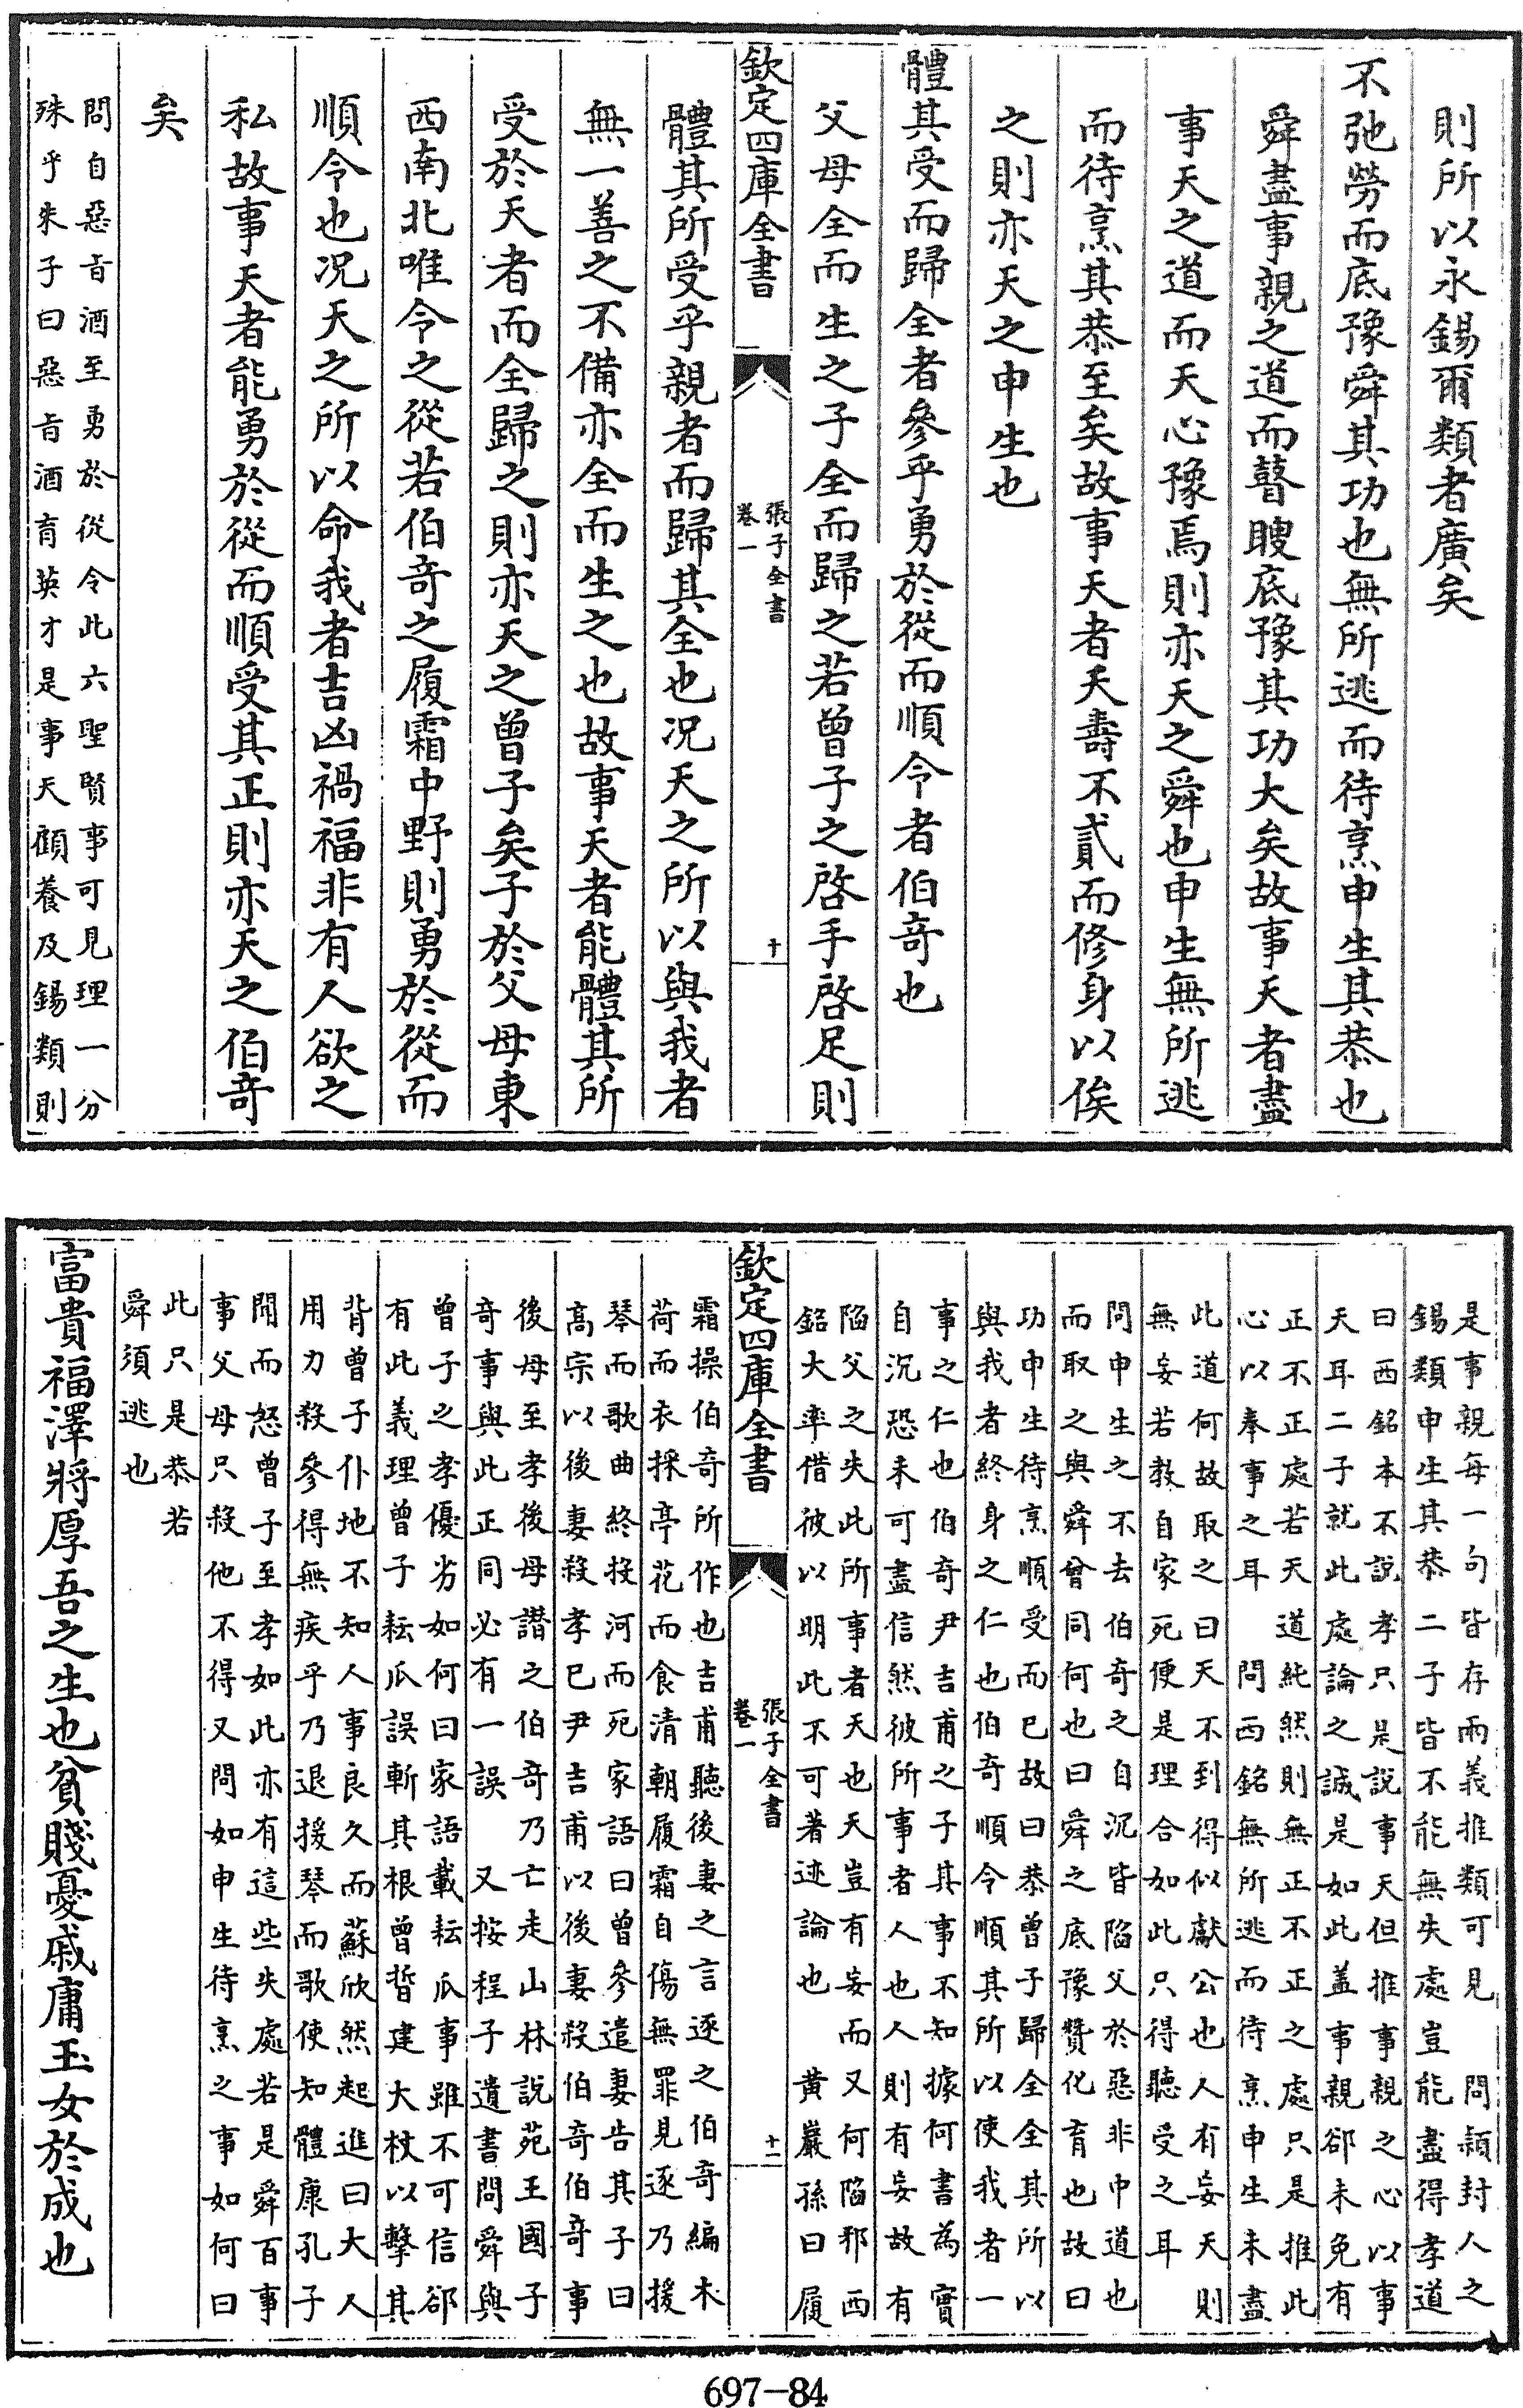 則所以永錫爾類者廣矣
不弛勞而底豫舜其功也無所逃而待烹申生其恭也
舜盡事親之道而瞽瞍底豫其功大矣故事天者盡
事天之道而天心豫焉則亦天之舜也申生無所逃
而待烹其恭至矣故事天者夭壽不貳而修身以俟
之則亦天之申生也
體其受而歸全者參乎勇於從而順令者伯竒也
父母全而生之子全而歸之若曾子之啓手啓足則
欽定四庫全書
張子全書
卷一
十
體其所受乎親者而歸其全也况天之所以與我者
無一善之不備亦全而生之也故事天者能體其所
受於天者而全歸之則亦天之曾子矣子於父母東
西南北唯令之從若伯竒之履霜中野則勇於從而
順令也况天之所以命我者吉凶禍福非有人欲之
私故事天者能勇於從而順受其正則亦天之伯竒
矣
問自惡㫖酒至勇於從令此六聖賢事可見理一分
殊乎朱子曰惡㫖酒育英才是事天顧養及錫類則
是事親每一句皆存兩義推類可見 問潁封人之
錫類申生其恭二子皆不能無失處豈能盡得孝道
曰西銘本不說孝只是說事天但推事親之心以事
天耳二子就此處論之誠是如此盖事親郤未免有
正不正處若天道純然則無正不正之處只是推此
心以奉事之耳 問西銘無所逃而待烹申生未盡
此道何故取之曰天不到得似獻公也人有妄天則
無妄若教自家死便是理合如此只得聽受之耳
問申生之不去伯竒之自沉皆陷父於惡非中道也
而取之與舜曾同何也曰舜之底豫贊化育也故曰
功申生待烹順受而已故曰恭曾子歸全全其所以
與我者終身之仁也伯竒順令順其所以使我者一
事之仁也伯竒尹吉甫之子其事不知據何書為實
自沉恐未可盡信然彼所事者人也人則有妄故有
陷父之失此所事者天也天豈有妄而又何陷邪西
銘大率借彼以明此不可著迹論也 黄巖孫曰履
欽定四庫全書
張子全書
卷一
十一
霜操伯竒所作也吉甫聽後妻之言逐之伯竒編木
荷而衣採亭花而食清朝履霜自傷無罪見逐乃援
琴而歌曲終投河而死家語曰曾參遣妻告其子曰
高宗以後妻殺孝已尹吉甫以後妻殺伯竒伯竒事
後母至孝後母譖之伯竒乃亡走山林說苑王國子
竒事與此正同必有一誤 又按程子遺書問舜與
曾子之孝優劣如何曰家語載耘瓜事雖不可信郤
有此義理曾子耘瓜誤斬其根曾晳建大杖以擊其
背曾子仆地不知人事良久而蘇欣然起進曰大人
用力殺參得無疾乎乃退援琴而歌使知體康孔子
聞而怒曾子至孝如此亦有這些失處若是舜百事
事父母只殺他不得又問如申生待烹之事如何曰
此只是恭若
舜須逃也
富貴福澤將厚吾之生也貧賤憂戚庸玉女於成也
697-84